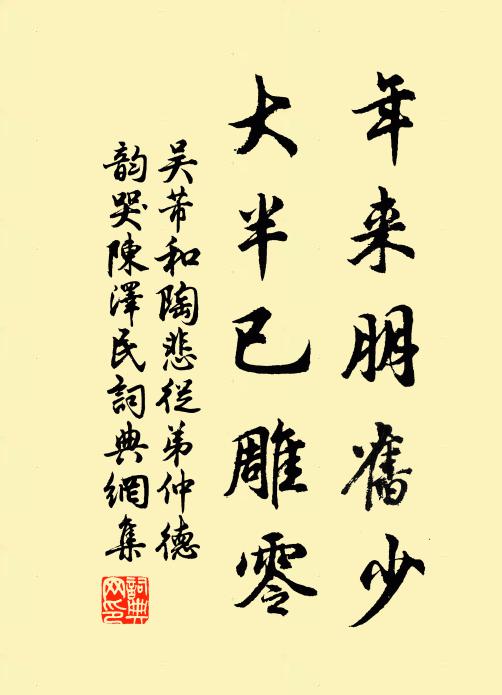 年来朋舊少
大半已雕零
吴芾和陶悲從弟仲德
韵哭陳澤民詞典網集
詞典网印